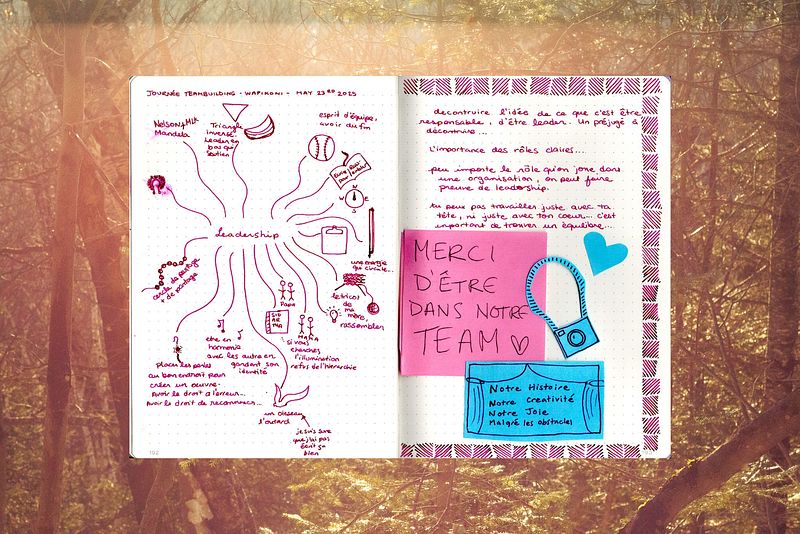 JOURNÉE TEAMBUILDING - WAPIKONI - MAY 23RD 2025
Nelson & MLK
Mandela
Triangle
inversé.
Leader en
bas qui
soutien
esprit d'équipe,
avoir du fun
N
W
E
S
Leadership
une énergie
qui circule...
cercle de partage
+ de perlage
Papa
MAMA
le tricot
de
ma
mère,
rassembler
être en
harmonie
avec les autre en
gardant son
identité
si vous
cherchez
l'illumination
refus de l'hierarchie
placer les perles
au bon endroit pour
créer un oeuvre.
Avoir le droit à l'erreur...
Avoir le droit de reconnec...
un oiseau
l'outard
je suis sure
que j'ai pas
écrit ça
bien
102
deconstruire l'idée de ce que c'est être
responsable, d'être leader. Un préjugé à
décontruire...
L'importance des rôles claires...
peu importe le rôle qu'on joue dans
une organisation, on peut faire
preuve de leadership.
tu peux pas travailler juste avec ta
tête, ni juste avec ton coeur... c'est
important de trouver un équilibre...
MERCI
D'ÊTRE
DANS NOTRE
TEAM
Notre Histoire
Notre Creativité
Notre Joie
Malgré les obstacles